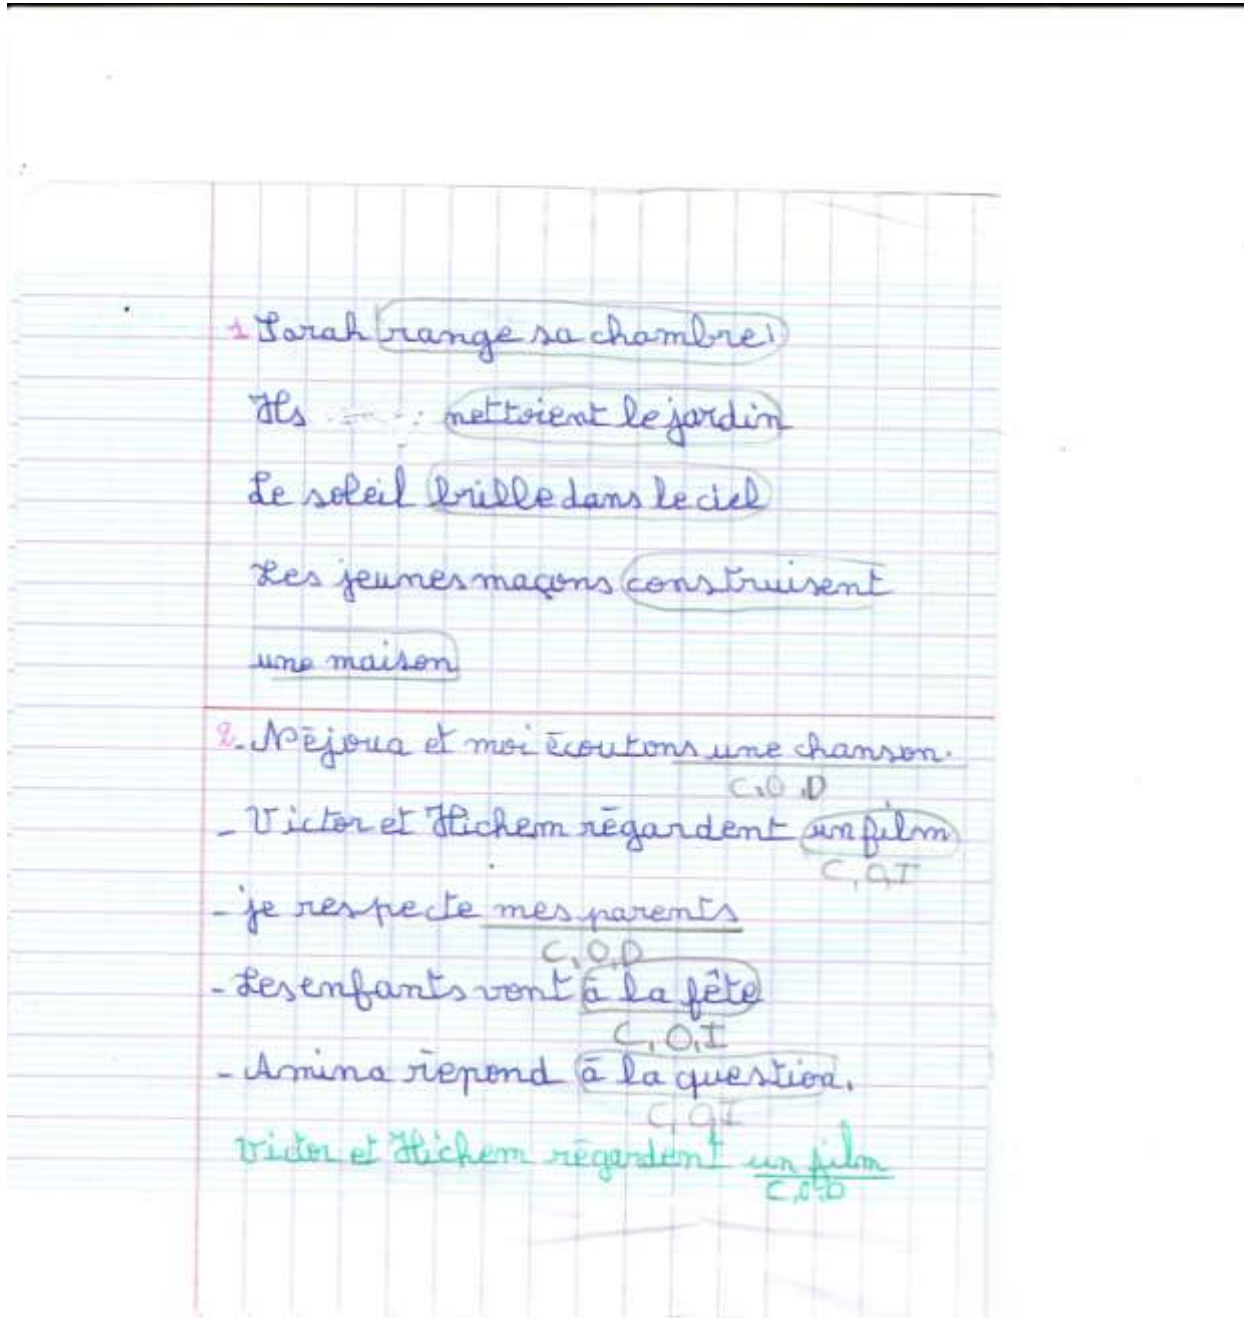 1 Sarah range sa chambre.
Ils nettoient le jardin
Le soleil brille dans le ciel
Les jeunes maçons construisent
une maison
2. Néjoua et moi écoutons une chanson.
C.O.D
- Victor et Hichem régardent un film
C.O.I
- je respecte mes parents
C.O.D
- Les enfants vont à la fête
C.O.I
- Amina répond à la question.
C.O.I
Victor et Hichem régardent un film
C.O.D